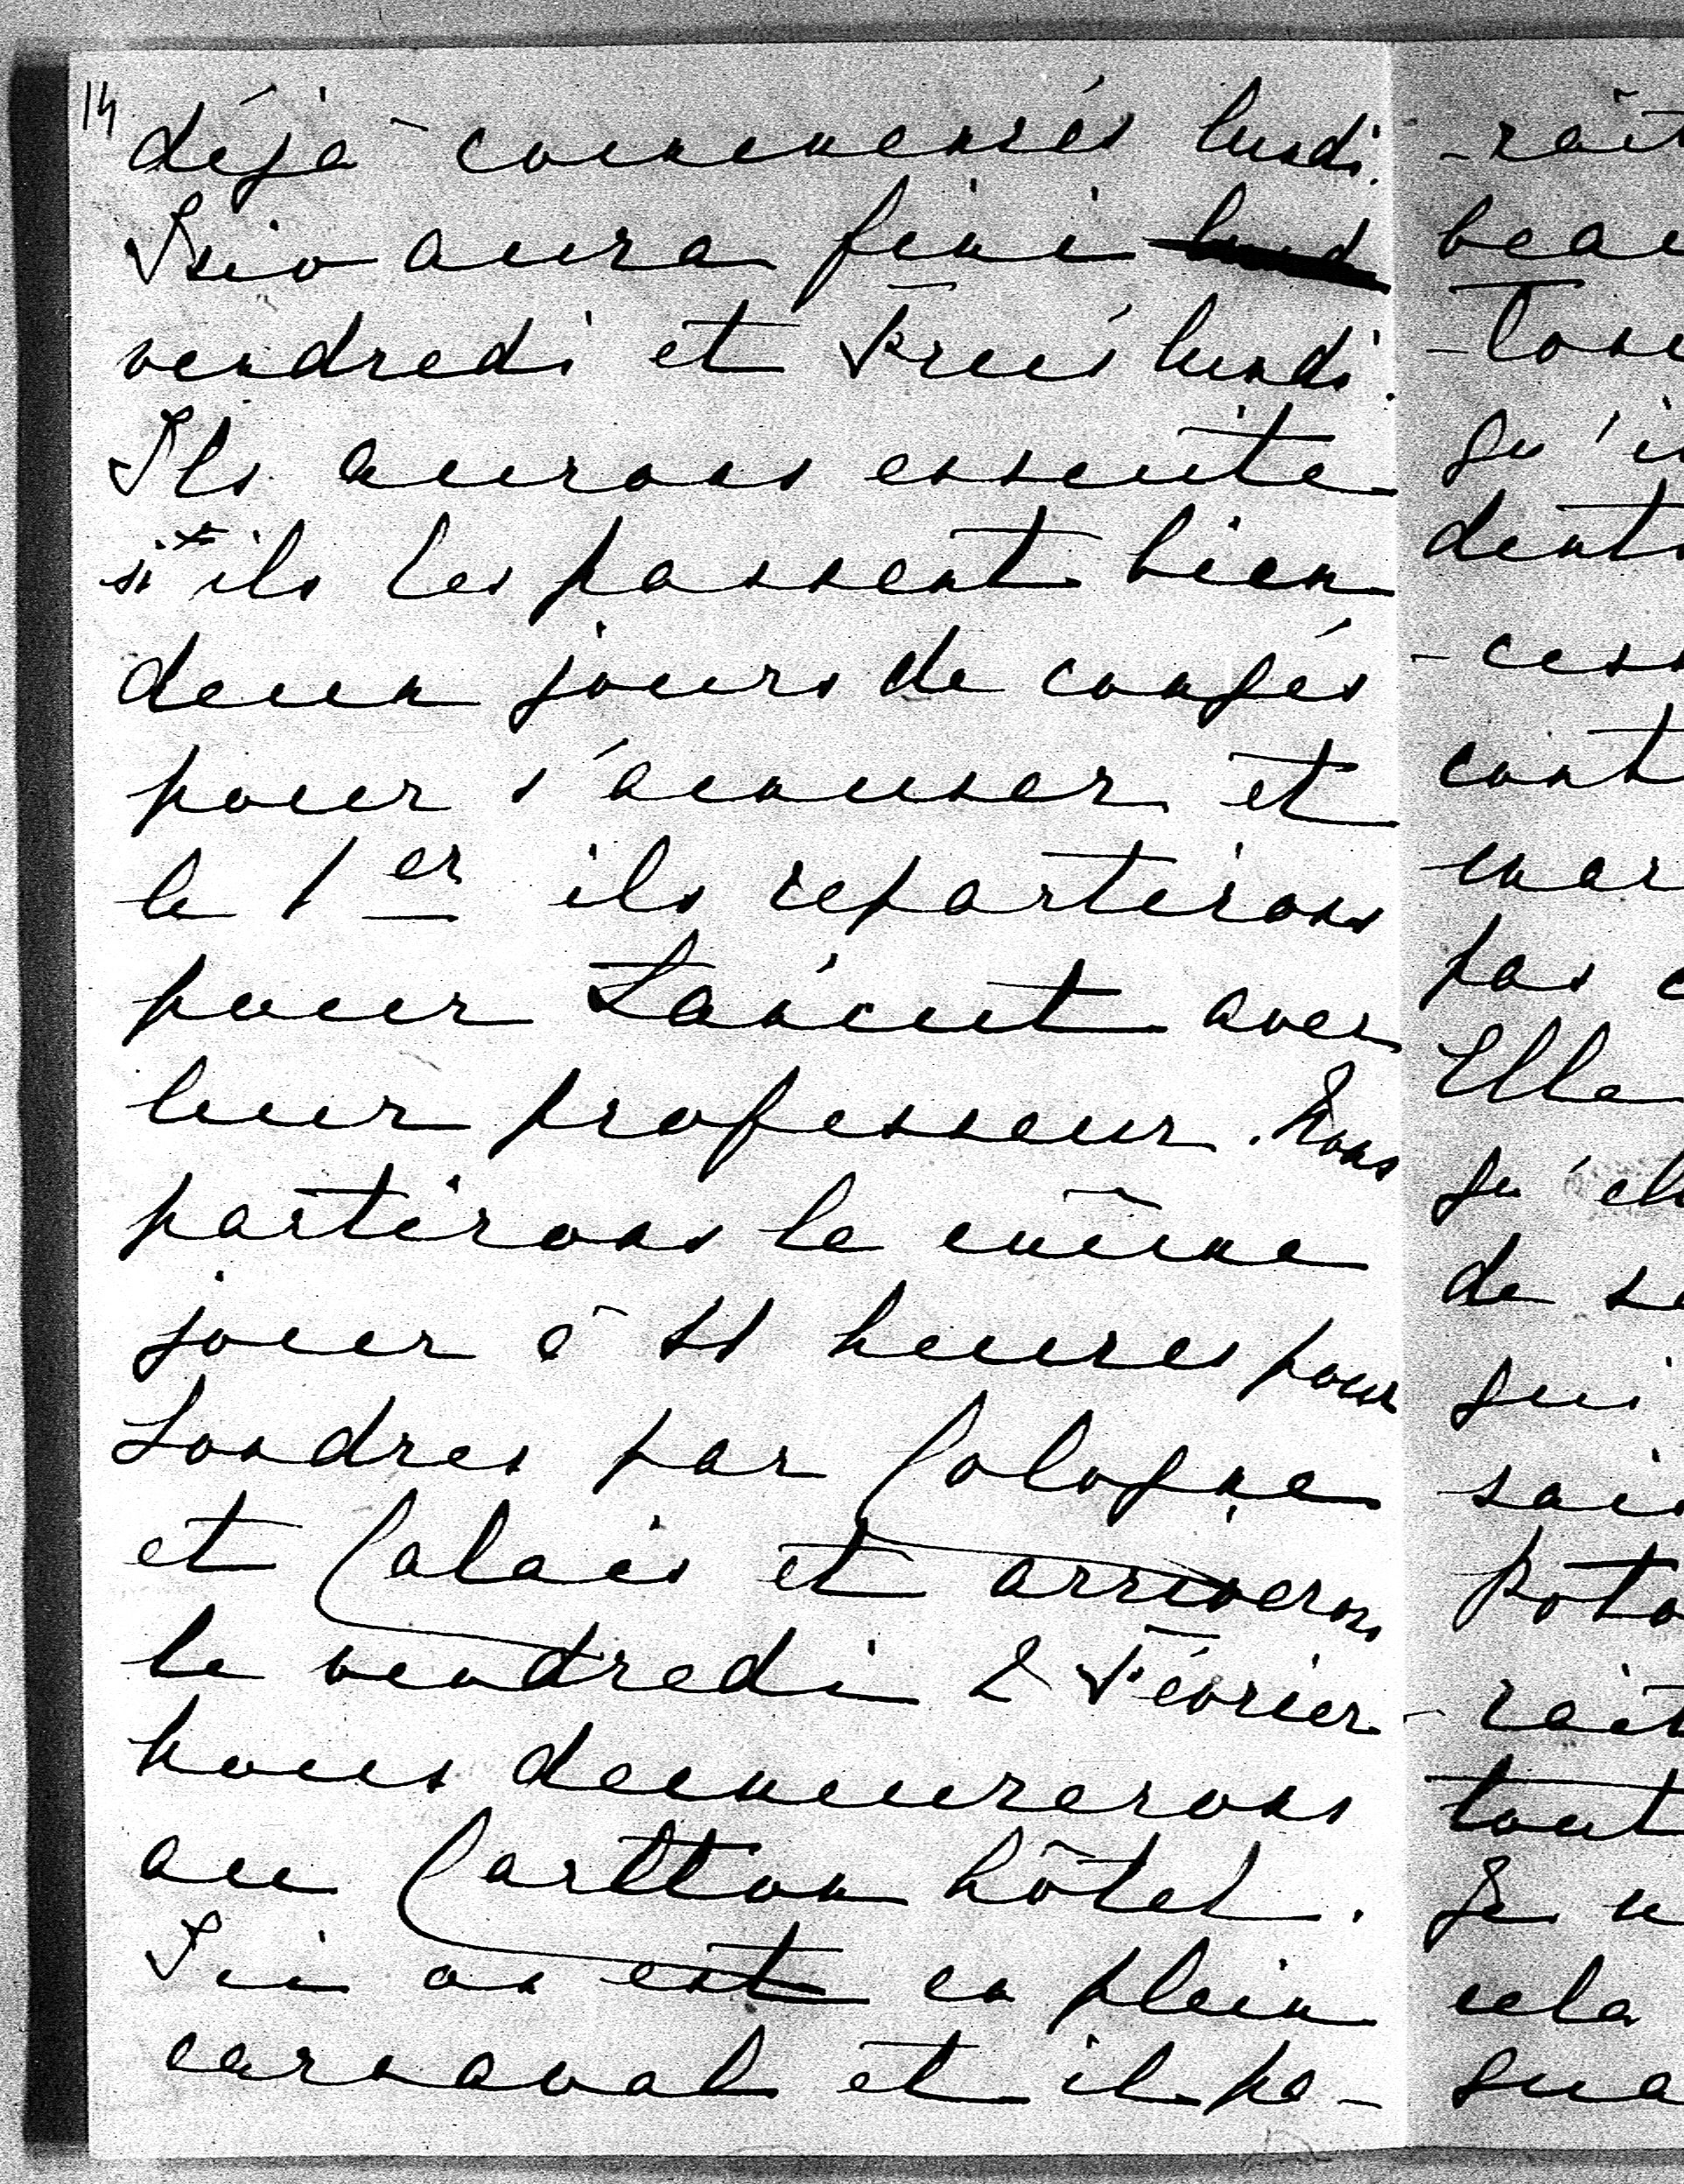 14
déjà commensés lundi.
Isio aura fini lund
vendredi et lundi.
Ils aurons ensuite
si ils les passent bien
deux jours de congés
pour s'amuser et
le 1er ils repartirons
pour Łańcut avec
leur professeur. Nous
partirons le même
jour à 11 heures pour
Londres par Cologne
et Calais et arriverons
le vendredi 2 Février
nous demeurerons
au Carltton hôtel.
Ici on est en plein
carnaval et il pa-
-rait
beau
qu'i
dent
-cess
cont
mar
pas
Elle
qu'el
de
qui
Poto
-rait
tout
Je n
cela
qua